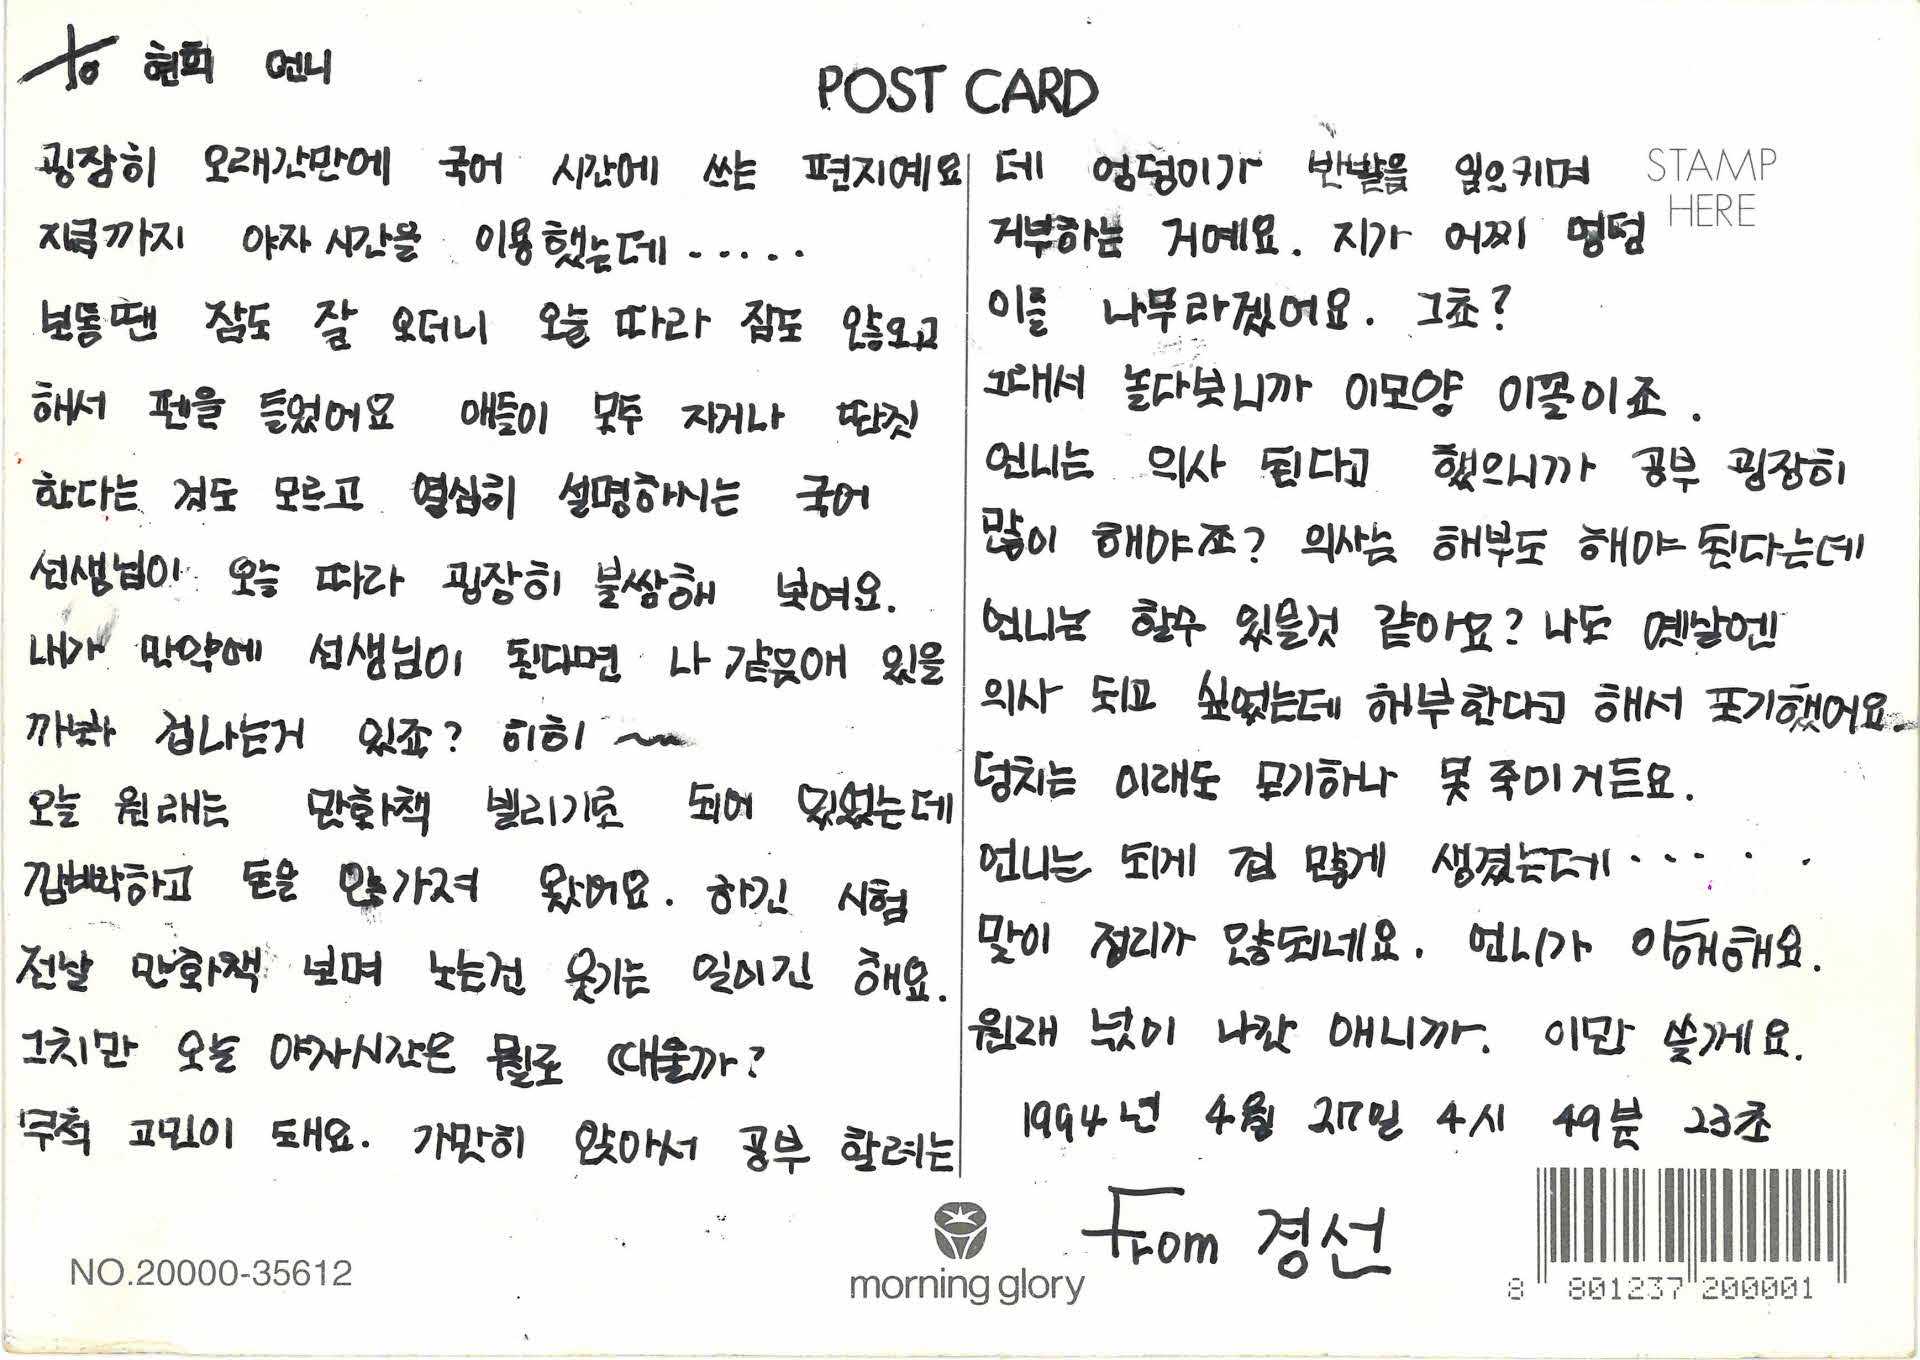 to 현희 언니
POST CARD
굉장히 오래간만에 국어 시간에 쓰는 편지예요
지금까지 야자시간을 이용했는데.....
보통땐 잠도 잘 오더니 오늘 따라 잠도 않오고
해서 펜을 들었어요 애들이 모두 자거나 딴짓
한다는 것도 모르고 열심히 설명하시는 국어
선생님이 오늘 따라 굉장히 불쌍해 보여요.
내가 만약에 선생님이 된다면 나 같은애 있을
까봐 겁나는거 있죠? 히히 ~
오늘 원래는 만화책 빌리기로 되어 있었는데
깜빡하고 돈을 않가져 왔어요. 하긴 시험
전날 만화책 보며 노는건 웃기는 일이긴 해요.
그치만 오늘 야자시간은 뭘로 때울까?
무척 고민이 돼요. 가만히 앉아서 공부 할려는
데 엉덩이가 반발을 일으키며
거부하는 거예요. 지가 어찌 엉덩
이를 나무라겠어요. 그쵸?
그래서 놀다보니까 이모양 이꼴이죠.
언니는 의사 된다고 했으니까 공부 굉장히
많이 해야죠? 의사는 해부도 해야 된다는데
언니는 할수 있을것 같아요? 나도 옛날엔
의사 되고 싶었는데 해부한다고 해서 포기했어요.
덩치는 이래도 모기하나 못 죽이거든요.
언니는 되게 겁 많게 생겼는데.....
말이 정리가 않되네요. 언니가 이해해요.
원래 넋이 나간 애니까. 이만 쓸께요.
1994년 4월 27일 4시 49분 23초
From 경선
STAMP
HERE
NO.20000-35612
morning glory
8 801237 200001